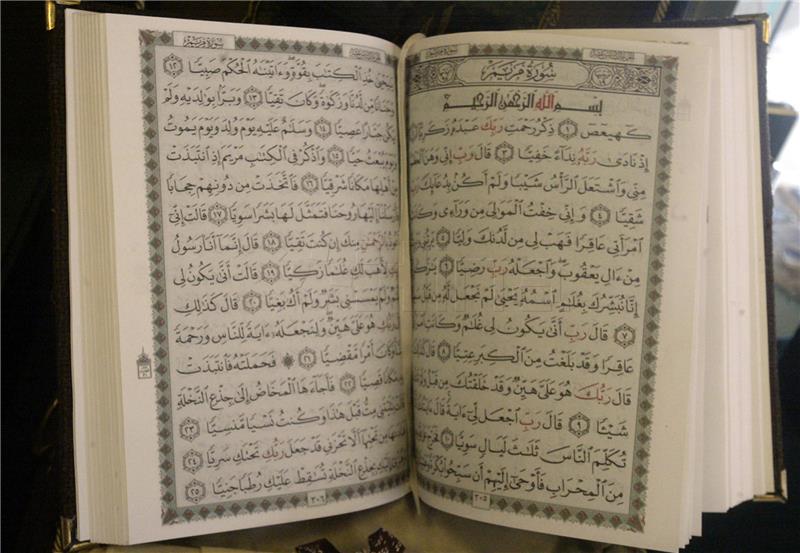 سُورَةُ مَرْيَمَ
سُورَةُ مَرْيَمَ
بِسْمِ اللَّهِ الرَّحْمَٰنِ الرَّحِيمِ
كٓهيعٓصٓ ١ ذِكْرُ رَحْمَتِ رَبِّكَ عَبْدَهُۥ زَكَرِيَّآ
إِذْ نَادَىٰ رَبَّهُۥ نِدَآءً خَفِيًّا ٣ قَالَ رَبِّ إِنِّى وَهَنَ الْعَظْمُ
مِنِّى وَاشْتَعَلَ الرَّأْسُ شَيْبًا وَلَمْ أَكُنۢ بِدُعَآئِكَ رَبِّ
شَقِيًّا ٤ وَإِنِّى خِفْتُ الْمَوَٰلِىَ مِن وَرَآءِى وَكَانَتِ
امْرَأَتِى عَاقِرًا فَهَبْ لِى مِن لَّدُنكَ وَلِيًّا ٥ يَرِثُنِى
مِنْ ءَالِ يَعْقُوبَ وَاجْعَلْهُ رَبِّ رَضِيًّا ٦ يَٰزَكَرِيَّآ
إِنَّا نُبَشِّرُكَ بِغُلَٰمٍ اسْمُهُۥ يَحْيَىٰ لَمْ نَجْعَل لَّهُۥ مِن قَبْلُ
٧ قَالَ رَبِّ أَنَّىٰ يَكُونُ لِى غُلَٰمٌ وَكَانَتِ امْرَأَتِى
عَاقِرًا وَقَدْ بَلَغْتُ مِنَ الْكِبَرِ عِتِيًّا ٨ قَالَ كَذَٰلِكَ
قَالَ رَبُّكَ هُوَ عَلَىَّ هَيِّنٌ وَقَدْ خَلَقْتُكَ مِن قَبْلُ
شَيْـًٔا ٩ قَالَ رَبِّ اجْعَل لِّى ءَايَةً قَالَ ءَايَتُكَ
تُكَلِّمَ النَّاسَ ثَلَٰثَ لَيَالٍ سَوِيًّا ١٠ فَخَرَجَ
مِنَ الْمِحْرَابِ فَأَوْحَىٰٓ إِلَيْهِمْ أَن سَبِّحُوا۟ بُكْرَةً
٣٠٥
سُورَةُ مَرْيَمَ
يَٰيَحْيَىٰ خُذِ الْكِتَٰبَ بِقُوَّةٍ وَءَاتَيْنَٰهُ الْحُكْمَ صَبِيًّا ١٢
وَحَنَانًا مِّن لَّدُنَّا وَزَكَوٰةً وَكَانَ تَقِيًّا ١٣ وَبَرًّۢا بِوَٰلِدَيْهِ وَلَمْ
يَكُن جَبَّارًا عَصِيًّا ١٤ وَسَلَٰمٌ عَلَيْهِ يَوْمَ وُلِدَ وَيَوْمَ يَمُوتُ
وَيَوْمَ يُبْعَثُ حَيًّا ١٥ وَاذْكُرْ فِى الْكِتَٰبِ مَرْيَمَ إِذِ انتَبَذَتْ
مِنْ أَهْلِهَا مَكَانًا شَرْقِيًّا ١٦ فَاتَّخَذَتْ مِن دُونِهِمْ حِجَابًا
فَأَرْسَلْنَآ إِلَيْهَا رُوحَنَا فَتَمَثَّلَ لَهَا بَشَرًا سَوِيًّا ١٧ قَالَتْ إِنِّىٓ
أَعُوذُ بِالرَّحْمَٰنِ مِنكَ إِن كُنتَ تَقِيًّا ١٨ قَالَ إِنَّمَآ أَنَا۠ رَسُولُ
رَبِّكِ لِأَهَبَ لَكِ غُلَٰمًا زَكِيًّا ١٩ قَالَتْ أَنَّىٰ يَكُونُ لِى
غُلَٰمٌ وَلَمْ يَمْسَسْنِى بَشَرٌ وَلَمْ أَكُ بَغِيًّا ٢٠ قَالَ كَذَٰلِكِ
قَالَ رَبُّكِ هُوَ عَلَىَّ هَيِّنٌ وَلِنَجْعَلَهُۥٓ ءَايَةً لِّلنَّاسِ وَرَحْمَةً
مِّنَّا وَكَانَ أَمْرًا مَّقْضِيًّا ٢١ ۞ فَحَمَلَتْهُ فَانتَبَذَتْ
بِهِۦ مَكَانًا قَصِيًّا ٢٢ فَأَجَآءَهَا الْمَخَاضُ إِلَىٰ جِذْعِ النَّخْلَةِ
قَالَتْ يَٰلَيْتَنِى مِتُّ قَبْلَ هَٰذَا وَكُنتُ نَسْيًا مَّنسِيًّا ٢٣
فَنَادَىٰهَا مِن تَحْتِهَآ أَلَّا تَحْزَنِى قَدْ جَعَلَ رَبُّكِ تَحْتَكِ سَرِيًّا ٢٤
وَهُزِّىٓ إِلَيْكِ بِجِذْعِ النَّخْلَةِ تُسَٰقِطْ عَلَيْكِ رُطَبًا جَنِيًّا ٢٥
٣٠٦